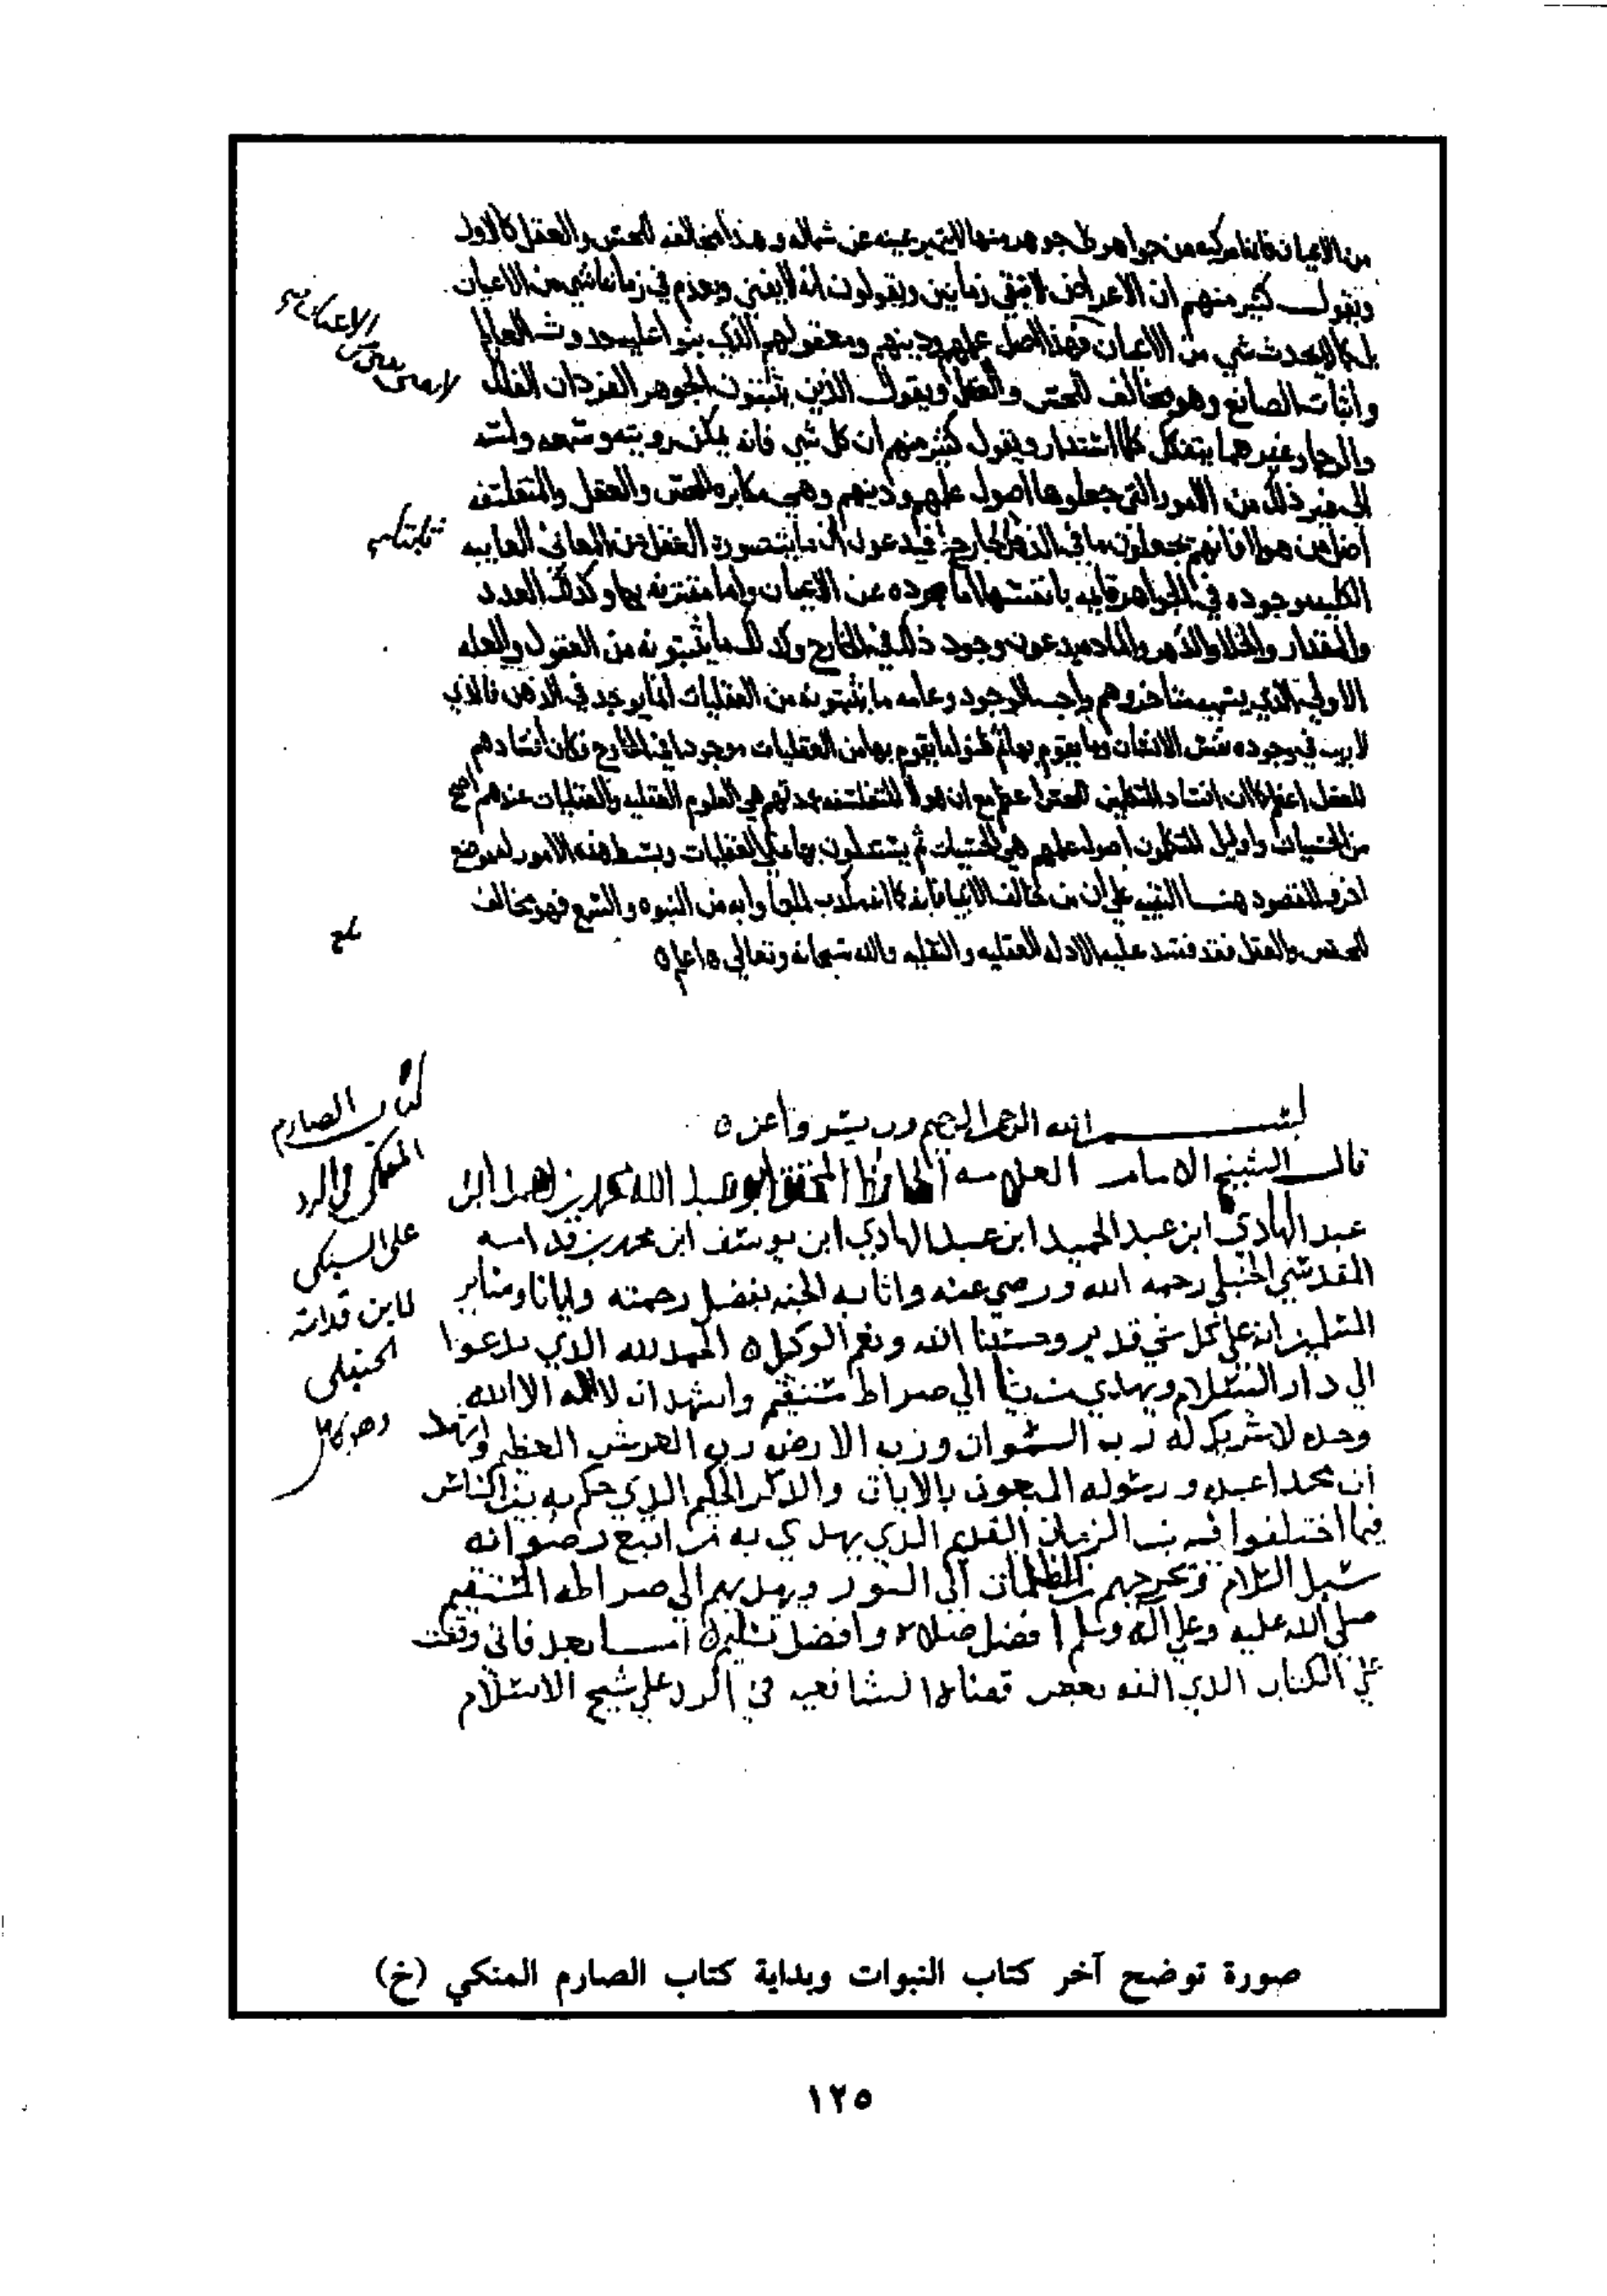 من الاعيان فانها مركبه من جواهر كل جوهر منها لا يتميز يمينه عن شماله وهذا مخالفه للحس والعقل كالاول
ويقول كثير منهم ان الاعراض لا تبقى زمانين ويقولون انه لا يفني ويعدم في زماننا شي من الاعيان
بل كما لا يحدث شي من الاعيان فهذا اصل علمهم ودينهم ومعقولهم الذي بنوا عليه حدوث العالم
واثبات الصانع وهو مخالف للحس والعقل ويقول الذين يثبتون الجوهر الفرد ان الفلك
والرحا وغيرهما يتفكك كلما استدار ويقول كثير منهم ان كل شي فانه يمكن رويته وسمعه ولمسه
الى غير ذلك من الامور التي جعلوها اصول علمهم ودينهم وهي مكابره للحس والعقل والمتفلسفه
اضل من هولا فانهم يجعلون ما في الذهن في الخارج فيدعون ان ما يتصوره العقل من المعاني الغايبه
الكليه موجوده في الجواهر قايمه بانفسها اما مجرده عن الاعيان واما مقترنه بها وكذلك العدد
والمقدار والخلا والدهر والماده يدعون وجود ذلك في الخارج وكذلك ما يثبتونه من العقول والعله
الاولى الذي يسميه متاخروهم واجب الوجود وعامه ما يثبتونه من العقليات انما يوجد في الذهن فالذي
لا ريب في وجوده نفس الانسان وما يقوم بها ثم ظنوا ما يقوم بها من العقليات موجودا في الخارج فكان افسادهم
للعقل اعظم كما ان افساد المتكلمين للحس اعظم مع ان هولا المتفلسفه عمدتهم هي العلوم العقليه والعقليات عندهم اصح
من الحسيات واوليك المتكلمون اصول علمهم هي الحسيات ثم يستدلون بها على العقليات وبسط هذه الامور له موضع
اخر والمقصود هنا التنبيه على ان من خالف الانبيا فانه كما انه مكذب لما جاوا به من النبوه والسمع فهو مخالف
للحس والعقل فقد فسد عليه الادله العقليه والنقليه والله سبحانه وتعالى اعلم
ثابتا
بلغ
بسم الله الرحمن الرحيم رب يسر واعن
قال الشيخ الامام العلامه الحافظ المحقق ابو عبد الله محمد بن احمد ابن
عبد الهادي ابن عبد الحميد ابن عبد الهادي ابن يوسف ابن محمد بن قدامه
المقدسي الحنبلي رحمه الله ورضي عنه واثابه الجنه بفضل رحمته وايانا وساير
المسلمين انه على كل شي قدير وحسبنا الله ونعم الوكيل الحمد لله الذي يدعوا
الى دار السلام ويهدي من يشا الى صراط مستقيم واشهد ان لا اله الا الله
وحده لا شريك له رب السموات ورب الارض رب العرش العظيم واشهد
ان محمدا عبده ورسوله المبعوث بالايات والذكر الحكيم الذي حكم به بين الناس
فيما اختلفوا فيه الذي يهدي به من اتبع رضوانه
سبل السلام ويخرجهم من الظلمات الى النور ويهديهم الى صراطه المستقيم
صلى الله عليه وعلى اله وسلم افضل صلاة وافضل تسليم اما بعد فاني وقفت
على الكتاب الذي الفه بعض قضاة الشافعيه في الرد على شيخ الاسلام
كتاب الصارم
المنكي في الرد
على السبكي
لابن قدامة
الحنبلي
وهو كامل
صورة توضح آخر كتاب النبوات وبداية كتاب الصارم المنكي (خ)
١٢٥